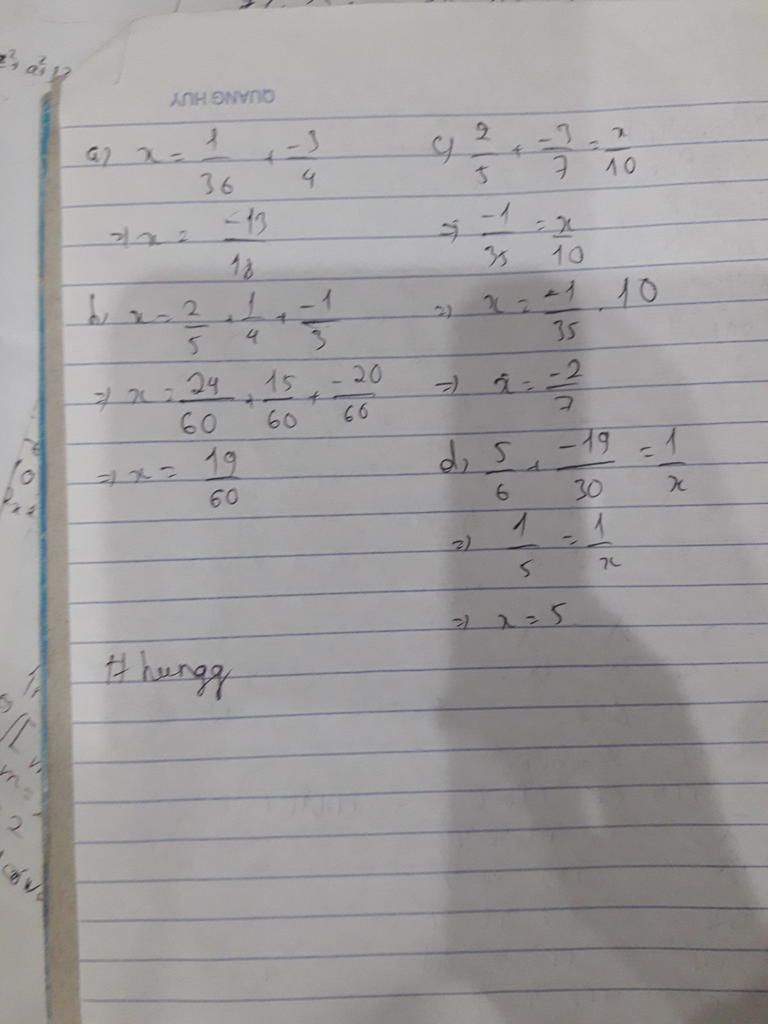 QUANG HUY
a) x = 1/36 + -3/4
=> x = -13/18
b, x = 2/5 + 1/4 + -1/3
=> x = 24/60 + 15/60 + -20/60
=> x = 19/60
# hungg
c) 2/5 + -3/7 = x/10
=> -1/35 = x/10
=> x = -1/35 . 10
=> x = -2/7
d, 5/6 + -19/30 = 1/x
=> 1/5 = 1/x
=> x = 5